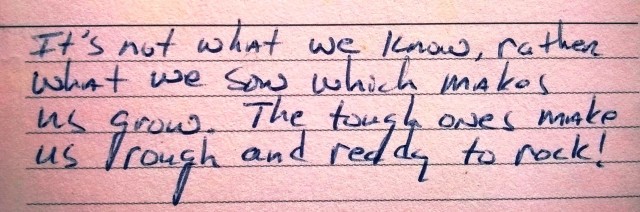 It's not what we know, rather
what we sow which makes
us grow. The tough ones make
us rough and reddy to rock!